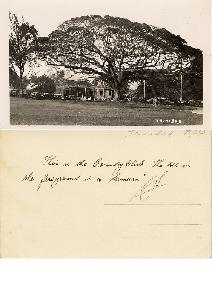 TRINIDAD
Trinidad
This is the Country Club. The tree in
the foreground is a "Samaan"